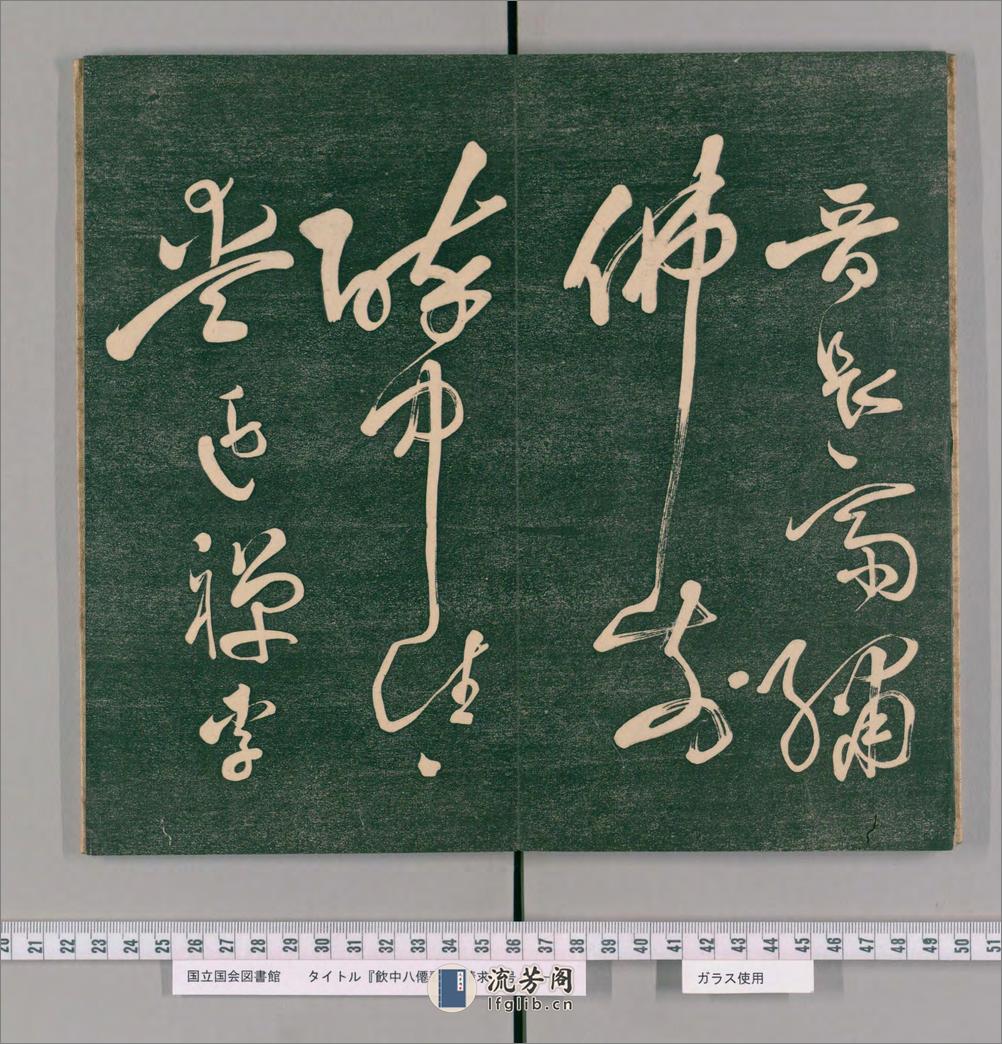 晉長齋繡
佛前
醉中往〻
愛逃禪李
20 21 22 23 24 25 26 27 28 29 30 31 32 33 34 35 36 37 38 39 40 41 42 43 44 45 46 47 48 49 50 51
国立国会図書館 タイトル『飲中八僊
ガラス使用
流芳阁
lfglib.cn